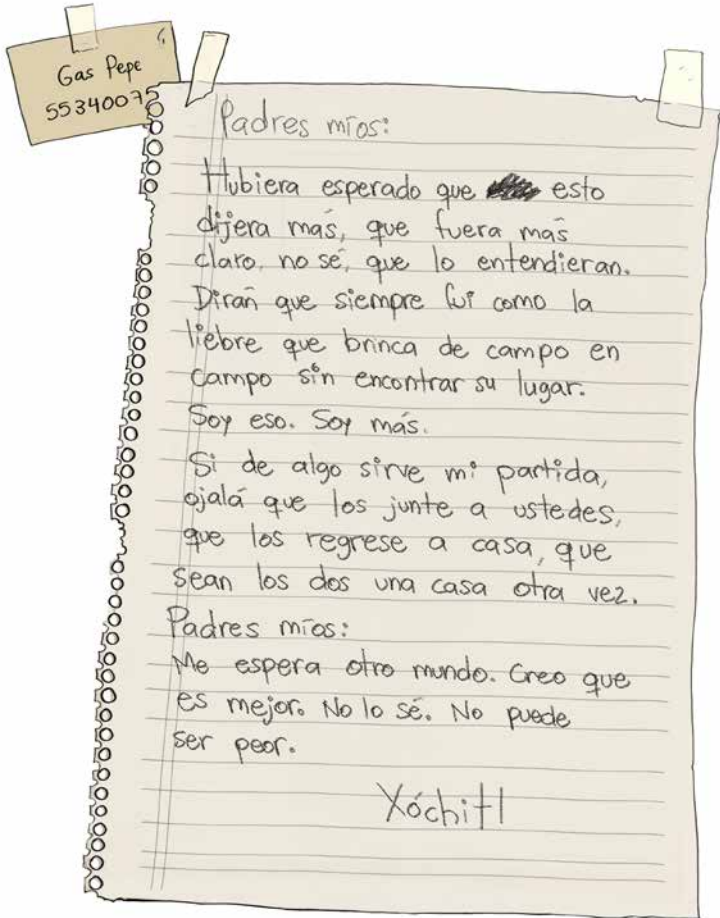 Gas Pepe
55340075
Padres míos:
Hubiera esperado que esto
dijera más, que fuera más
claro, no sé, que lo entendieran.
Dirán que siempre fui como la
liebre que brinca de campo en
campo sin encontrar su lugar.
Soy eso. Soy más.
Si de algo sirve mi partida,
ojalá que los junte a ustedes,
que los regrese a casa, que
sean los dos una casa otra vez.
Padres míos:
Me espera otro mundo. Creo que
es mejor. No lo sé. No puede
ser peor.
Xóchitl